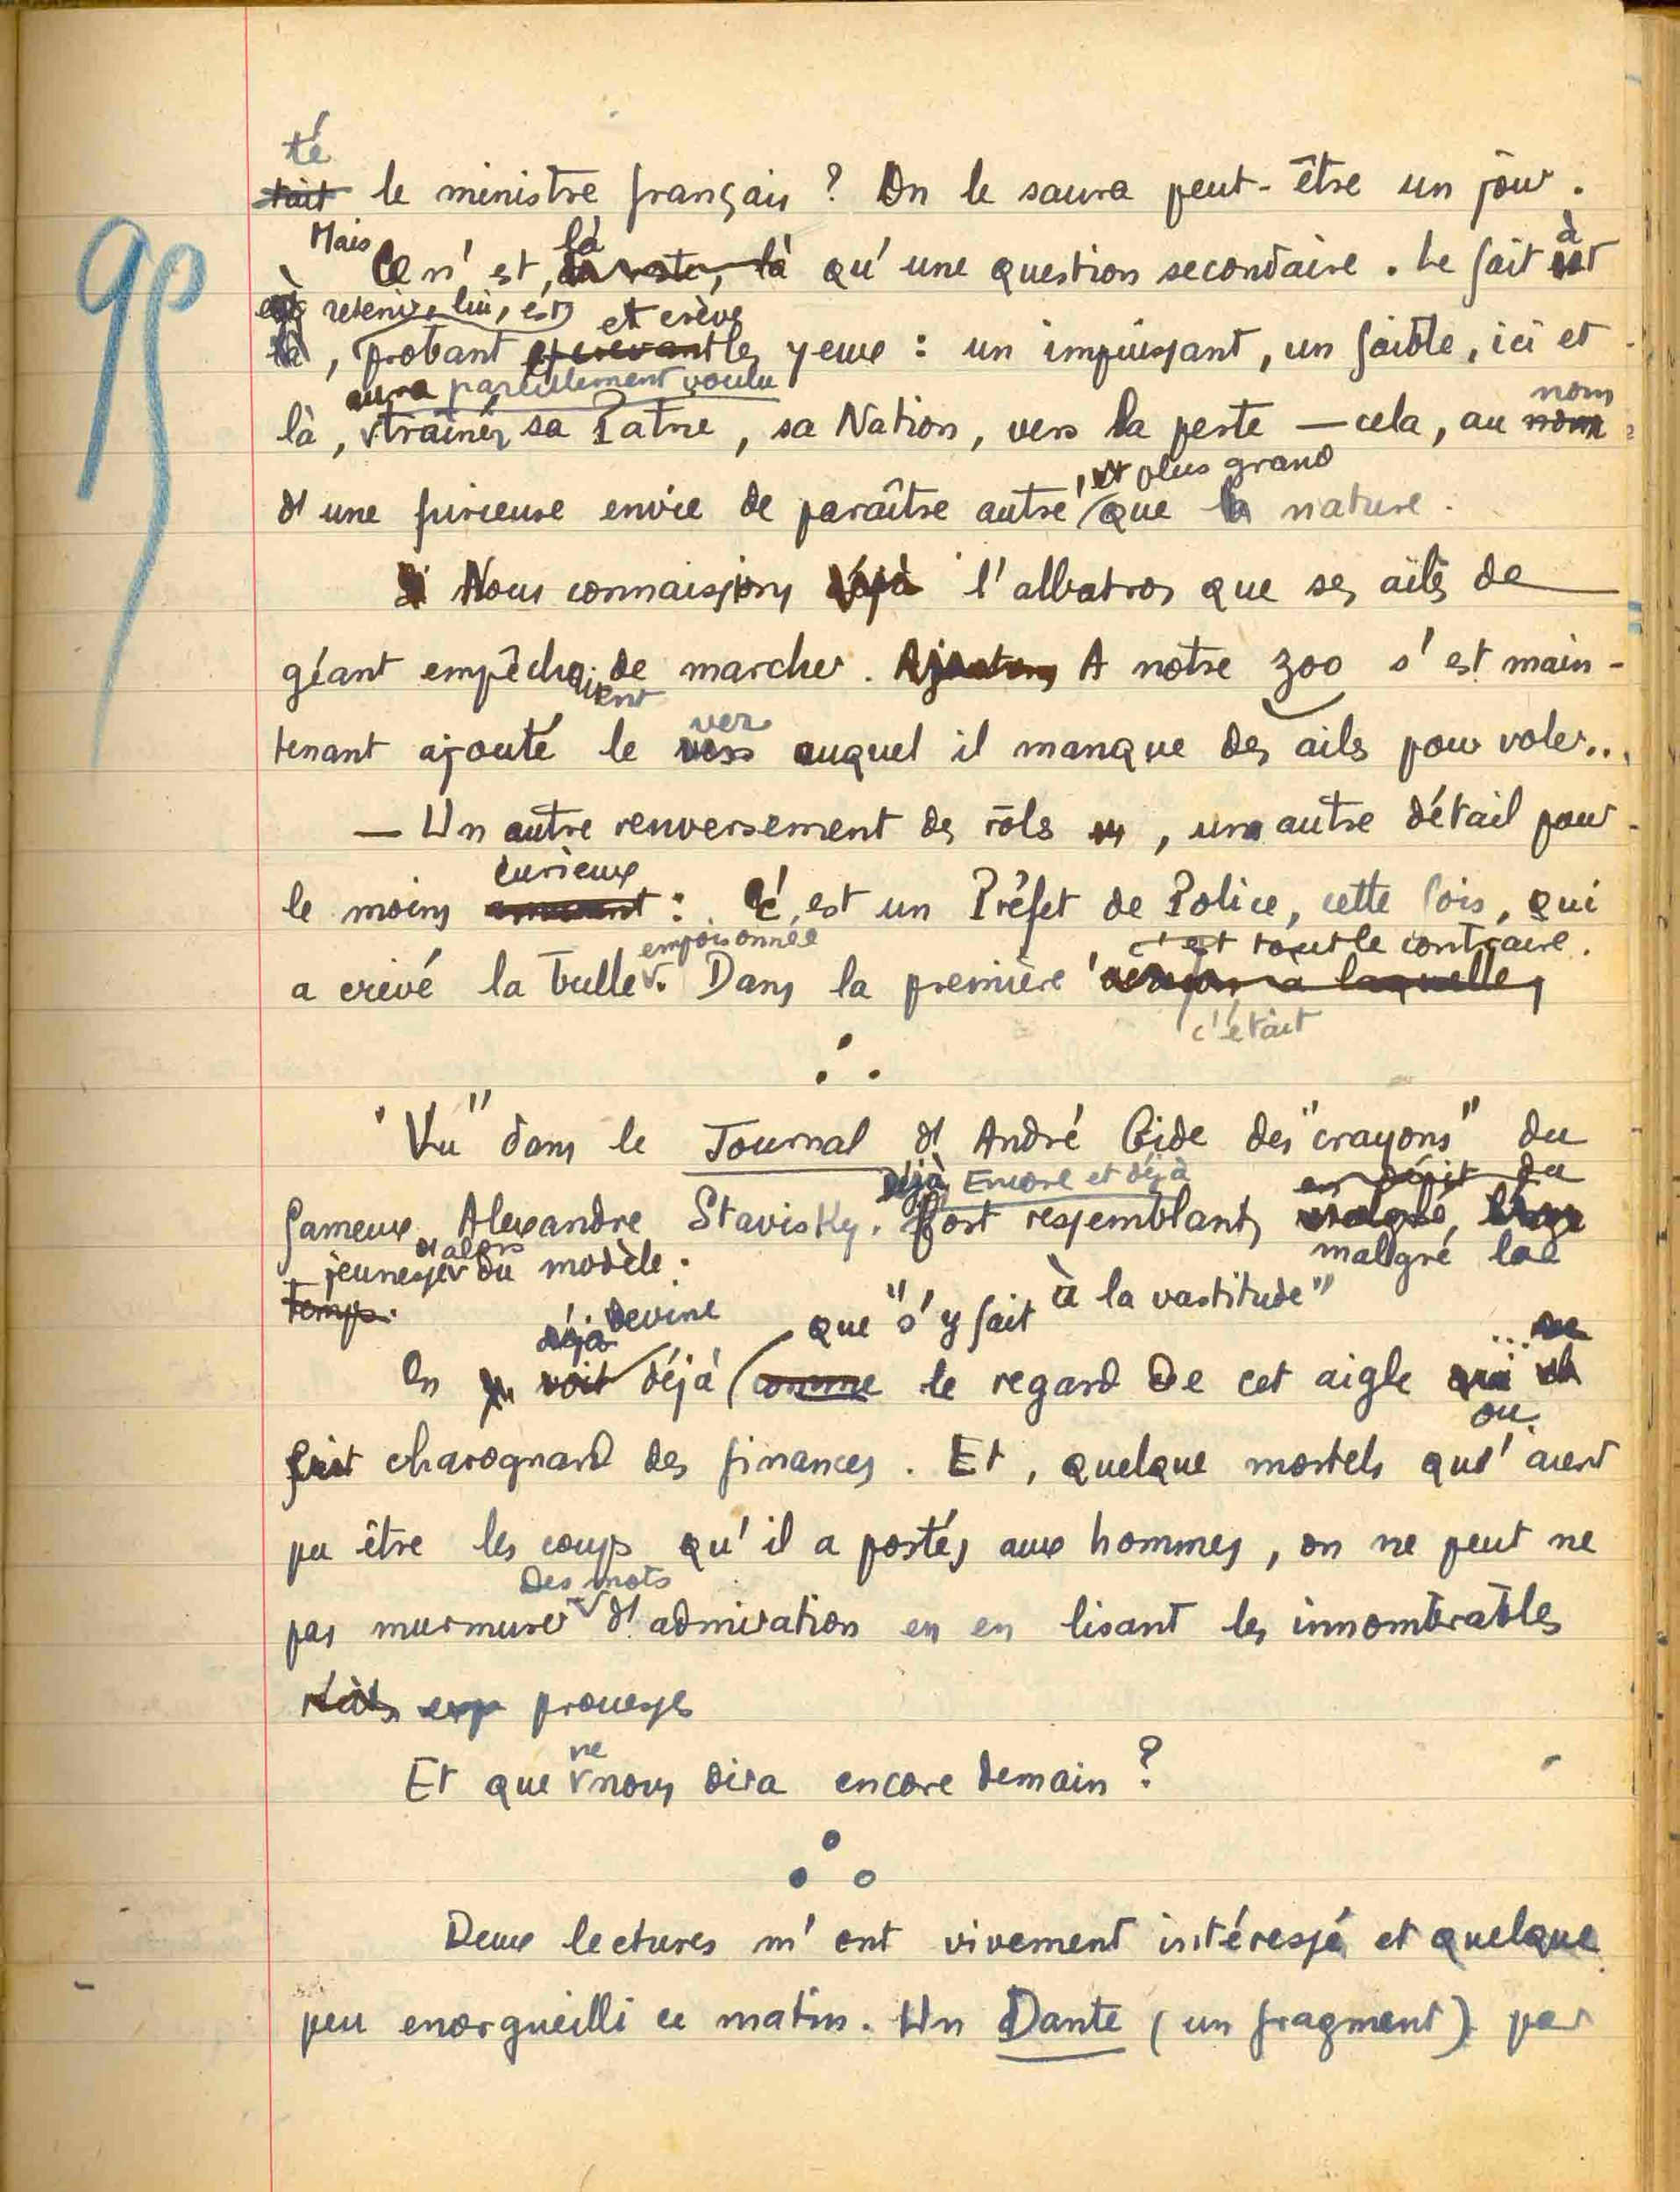 té
tait le ministre français ? On le saura peut-être un jour.
Mais là à
Ce n'est, du reste, là qu'une question secondaire. Le fait est
retenir, lui, est et crève
là, probant et crevant les yeux : un impuissant, un faible, ici et
aura pareillement voulu nom
là, traîner sa Patrie, sa Nation, vers la peste — cela, au nom
, et plus grand
d'une furieuse envie de paraître autre que la nature.
Nous connaissions déjà l'albatros que ses ailes de
géant empêchaient de marcher. Ajoutons A notre zoo s'est main-
ver
tenant ajouté le vers auquel il manque des ailes pour voler...
— Un autre renversement des rôles, un autre détail pour
curieux
le moins amusant : C'est un Préfet de Police, cette fois, qui
empoisonnée c'est tout le contraire.
a crevé la bulle. Dans la première version, à laquelle,
c'était
"Vu" dans le Journal d'André Gide des "crayons" du
déjà Encore et déjà en dépit du
fameux Alexandre Stavisky. Fort ressemblants malgré
d'alors malgré la
jeunesse du modèle.
temps.
déjà devine que "s'y fait à la vastitude"
On voit déjà comme le regard de cet aigle qui
... ou
fut charognard des finances. Et, quelque mortels qu'aient
pu être les coups qu'il a portés aux hommes, on ne peut ne
des mots
pas murmurer d'admiration en en lisant les innombrables
récits exp prouesses
ne
Et que nous dira encore demain ?
Deux lectures m'ont vivement intéressé et quelque
peu enorgueilli ce matin. Un Dante (un fragment) par